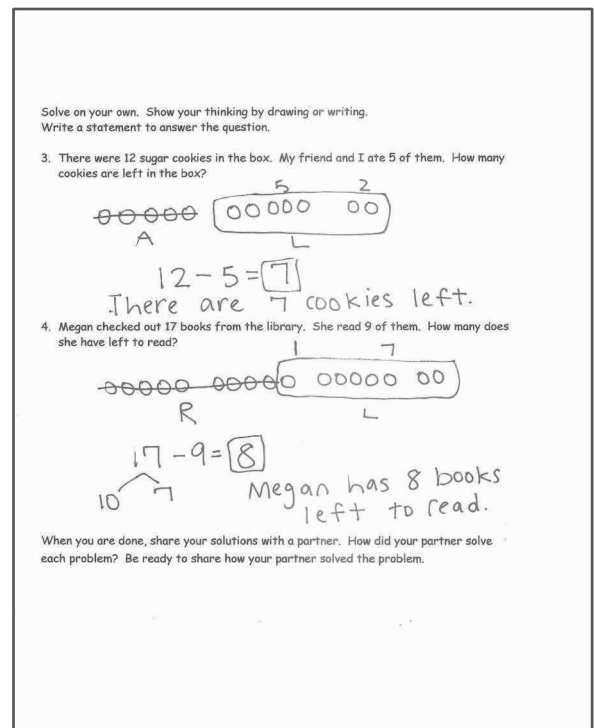 Solve on your own. Show your thinking by drawing or writing.
Write a statement to answer the question.
3. There were 12 sugar cookies in the box. My friend and I ate 5 of them. How many
cookies are left in the box?
5 2
A L
12 - 5 = 7
There are 7 cookies left.
4. Megan checked out 17 books from the library. She read 9 of them. How many does
she have left to read?
1 7
R L
17 - 9 = 8
10 7
Megan has 8 books
left to read.
When you are done, share your solutions with a partner. How did your partner solve
each problem? Be ready to share how your partner solved the problem.